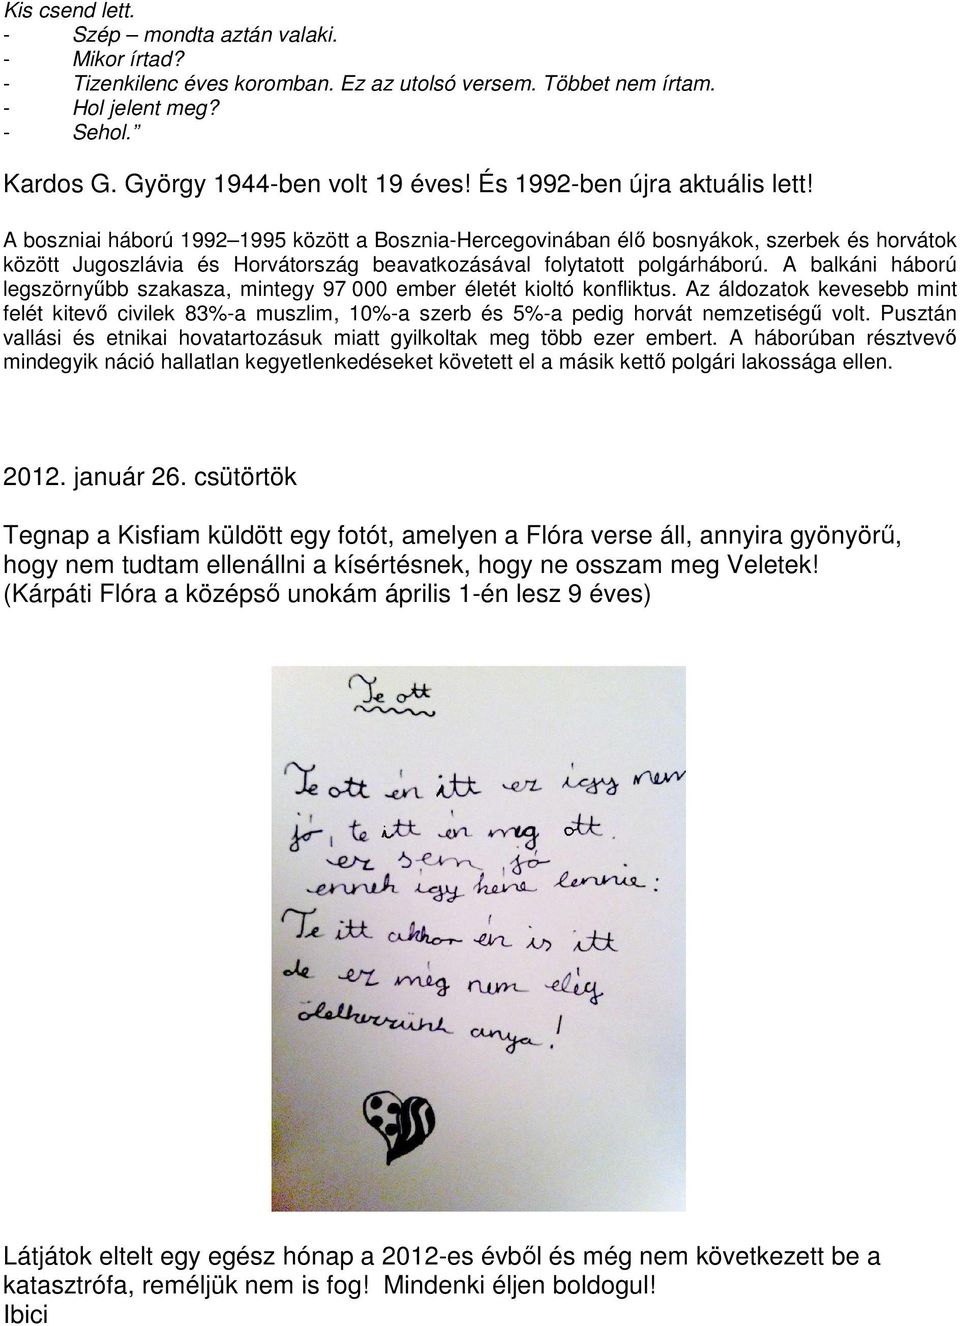 Kis csend lett.
- Szép – mondta aztán valaki.
- Mikor írtad?
- Tizenkilenc éves koromban. Ez az utolsó versem. Többet nem írtam.
- Hol jelent meg?
- Sehol.”
Kardos G. György 1944-ben volt 19 éves! És 1992-ben újra aktuális lett!
A boszniai háború 1992–1995 között a Bosznia-Hercegovinában élő bosnyákok, szerbek és horvátok
között Jugoszlávia és Horvátország beavatkozásával folytatott polgárháború. A balkáni háború
legszörnyűbb szakasza, mintegy 97 000 ember életét kioltó konfliktus. Az áldozatok kevesebb mint
felét kitevő civilek 83%-a muszlim, 10%-a szerb és 5%-a pedig horvát nemzetiségű volt. Pusztán
vallási és etnikai hovatartozásuk miatt gyilkoltak meg több ezer embert. A háborúban résztvevő
mindegyik náció hallatlan kegyetlenkedéseket követett el a másik kettő polgári lakossága ellen.
2012. január 26. csütörtök
Tegnap a Kisfiam küldött egy fotót, amelyen a Flóra verse áll, annyira gyönyörű,
hogy nem tudtam ellenállni a kísértésnek, hogy ne osszam meg Veletek!
(Kárpáti Flóra a középső unokám április 1-én lesz 9 éves)
Te ott
Te ott én itt ez igy nem
jó, te itt én meg ott.
ez sem jó
ennek igy kéne lennie:
Te itt akkor én is itt
de ez még nem elég
ölelkezzünk anya!
Látjátok eltelt egy egész hónap a 2012-es évből és még nem következett be a
katasztrófa, reméljük nem is fog! Mindenki éljen boldogul!
Ibici